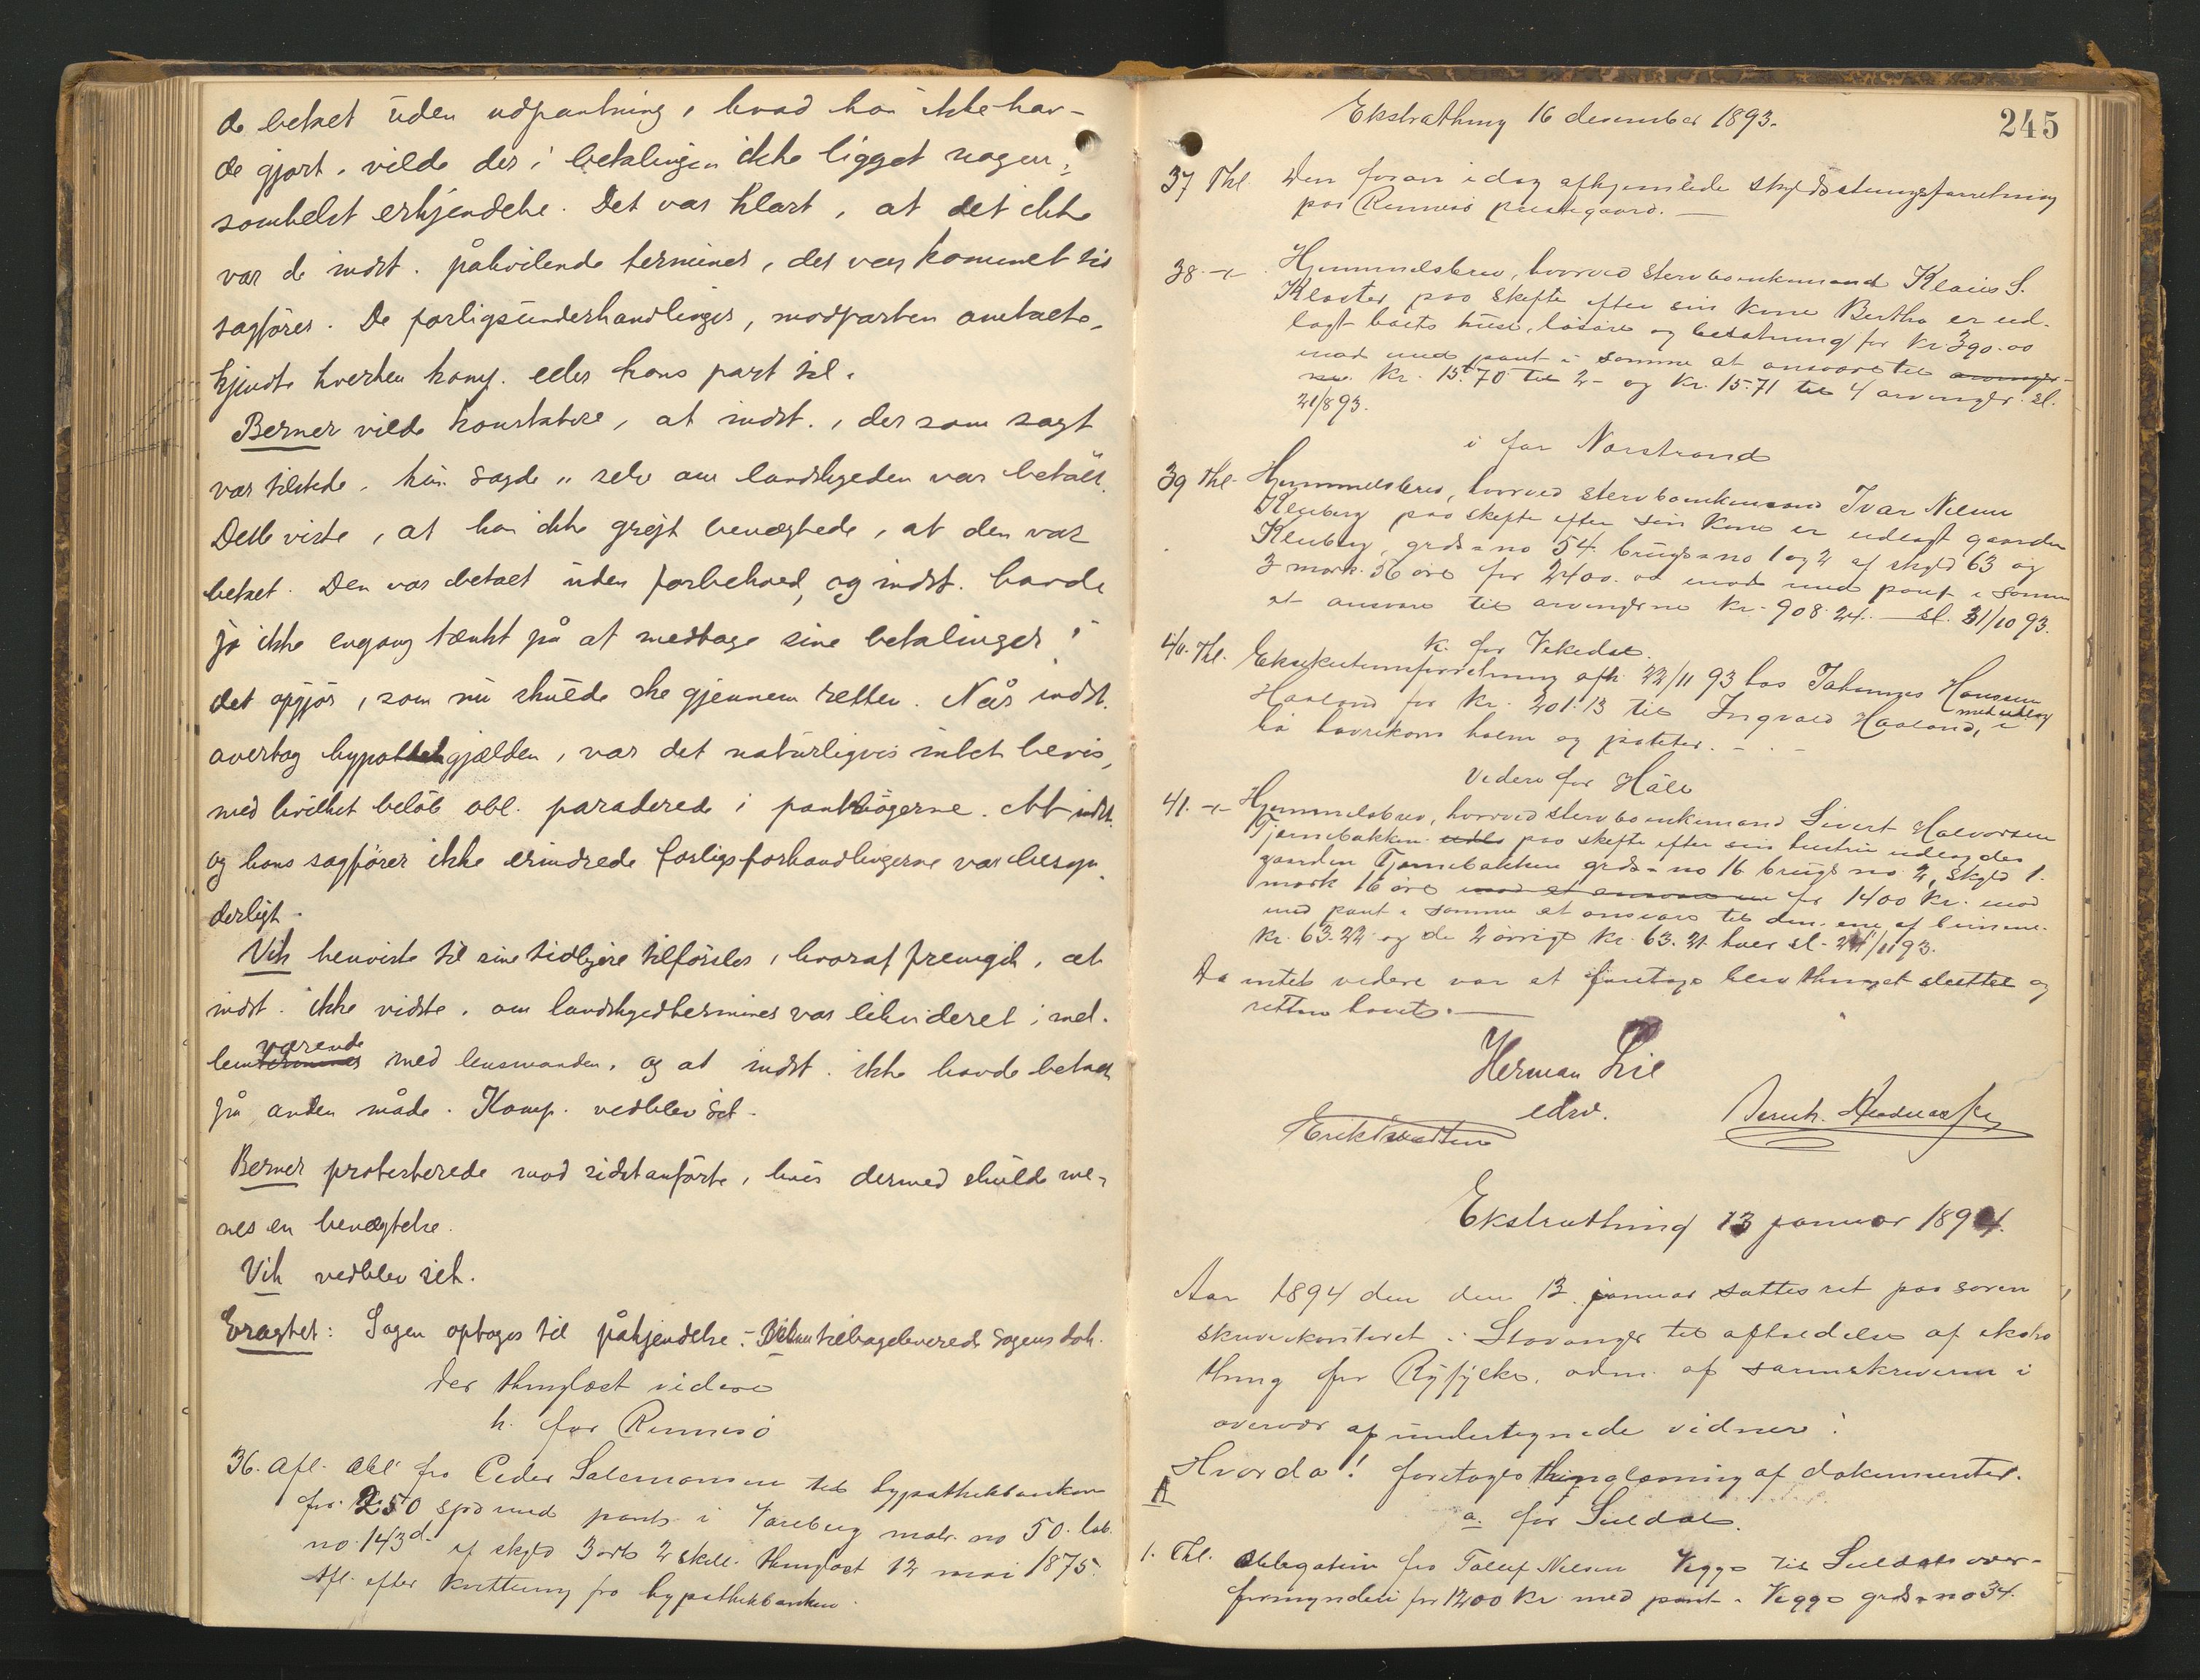 de betalt uden udpantning, hvad han ikke hav-
de gjort, vilde der i betalingen ikke ligget nogen-
somhelst erkjendelse. Det var klart, at det ikke
var de indst. påhvilende terminer, der var kommet til
sagfører. De forligsunderhandlinger, modparten omtalte,
kjendte hverken komp. eller hans part til.
Berner vilde konstatere, at indst., der som sagt
var tilstede, kun sagde "selv om landskylden var betalt.
Dette viste, at han ikke greit benægtede, at den var
betalt. Den var betalt uden forbehold, og indst. havde
jo ikke engang tænkt på at medtage sine betalinger i
det opgjør, som nu skulde ske gjennem retten. Når indst.
overtog hypothekgjælden, var det naturligvis intet bevis,
med hvilket beløb obl. paraderede i pantebøgerne. At indst.
og hans sagfører ikke erindrede forligsforhandlingerne var besyn-
derligt.
Vik henviste til sine tidligere tilførsler, hvoraf fremgik, at
indst. ikke vidste, om landskyldterminer var likvideret i mel-
lemværende med lensmanden, og at indst. ikke havde betalt
på anden måde. Komp. vedblev sit.
Berner protesterede mod sidstanførte, hvis dermed skulde me-
nes en benægtelse.
Vik vedblev sit.
Eragtet: Sagen optages til påkjendelse. - tilbageleverede sagens dok.
Der thinglæst videre
h. for Rennesø
36. Afl. Obl. fra Peder Salemonsen til hypothekbanken
for 250 spd med pant i Vareberg matr. no 50. løb.
no. 143d. af skyld 3 ort 2 skill. thinglæst 12 mai 1875.
Afl. efter kvittering fra hypothekbanken.
Ekstrathing 16 desember 1893.
245
37 Thl. Den foran idag afhjemlede skyldsdelingsforretning
paa Rennesø præstegaard. —
38. -"- Hjemmelsbrev, hvorved stervboenkemand Klaus S.
Kloster paa skifte efter sin kone Bertha er ud-
lagt boets huse, løsøre og besætning for kr. 390.00
mod med pant i samme at ansvare til arvinger-
ne. kr. 15.70 til 2 - og kr. 15.71 til 4 arvinger. sl.
21/8 93.
i for Norstrand
39 Thl. Hjemmelsbrev, hvorved stervboenkemand Ivar Nilsen
Kleiberg paa skifte efter sin kone er udlagt gaarden
Kleiberg, grds-no 54. brugs-no 1 og 2 af skyld 63 og
3 mark 56 øre for 2400.00 mod med pant i samme
at ansvare til arvingerne kr. 908.24. — sl. 31/10 93.
k. for Vikedal.
40. Thl. Eksekutionsforretning afh. 22/11 93 hos Johannes Hanssen
Haaland for kr. 201.13 til Ingvald Haaland, med udlæg i
hø havrekorn halm og poteter. - . -
Videre for Håle
41. -"- Hjemmelsbrev, hvorved stervboenkemand Sivert Halvorsen
Tjernebakken udlæ paa skifte efter sin hustru udlægdes
gaarden Tjernebakken grds-no 16 brugs no. 2, skyld 1.
mark 16 øre mod at ansvare for 1400 kr. mod
med pant i samme at ansvare til den ene af børnene
kr. 63.22 og de 2 øvrige kr. 63.21 hver sl. 24/11 93.
Da intet videre var at foretage blev thinget sluttet og
retten hævet. —
Herman Lie
edsv.
Erik Tvedten
Ekstrathing 13 januar 1894.
Aar 1894 den den 13. januar sattes ret paa soren
skriverkontoret i Stavanger til afholdelse af ekstra
thing for Ryfylke, adm. af sorenskriveren i
overvær af undertegnede vidner:
Hvorda! foretoges thinglæsning af dokumenter.
A
a. for Suldal.
1. Thl. Obligation fra Tollef Nilsen Vegge til Suldals over-
formynderi for 1200 kr med pant i Vegge grds-no 34.